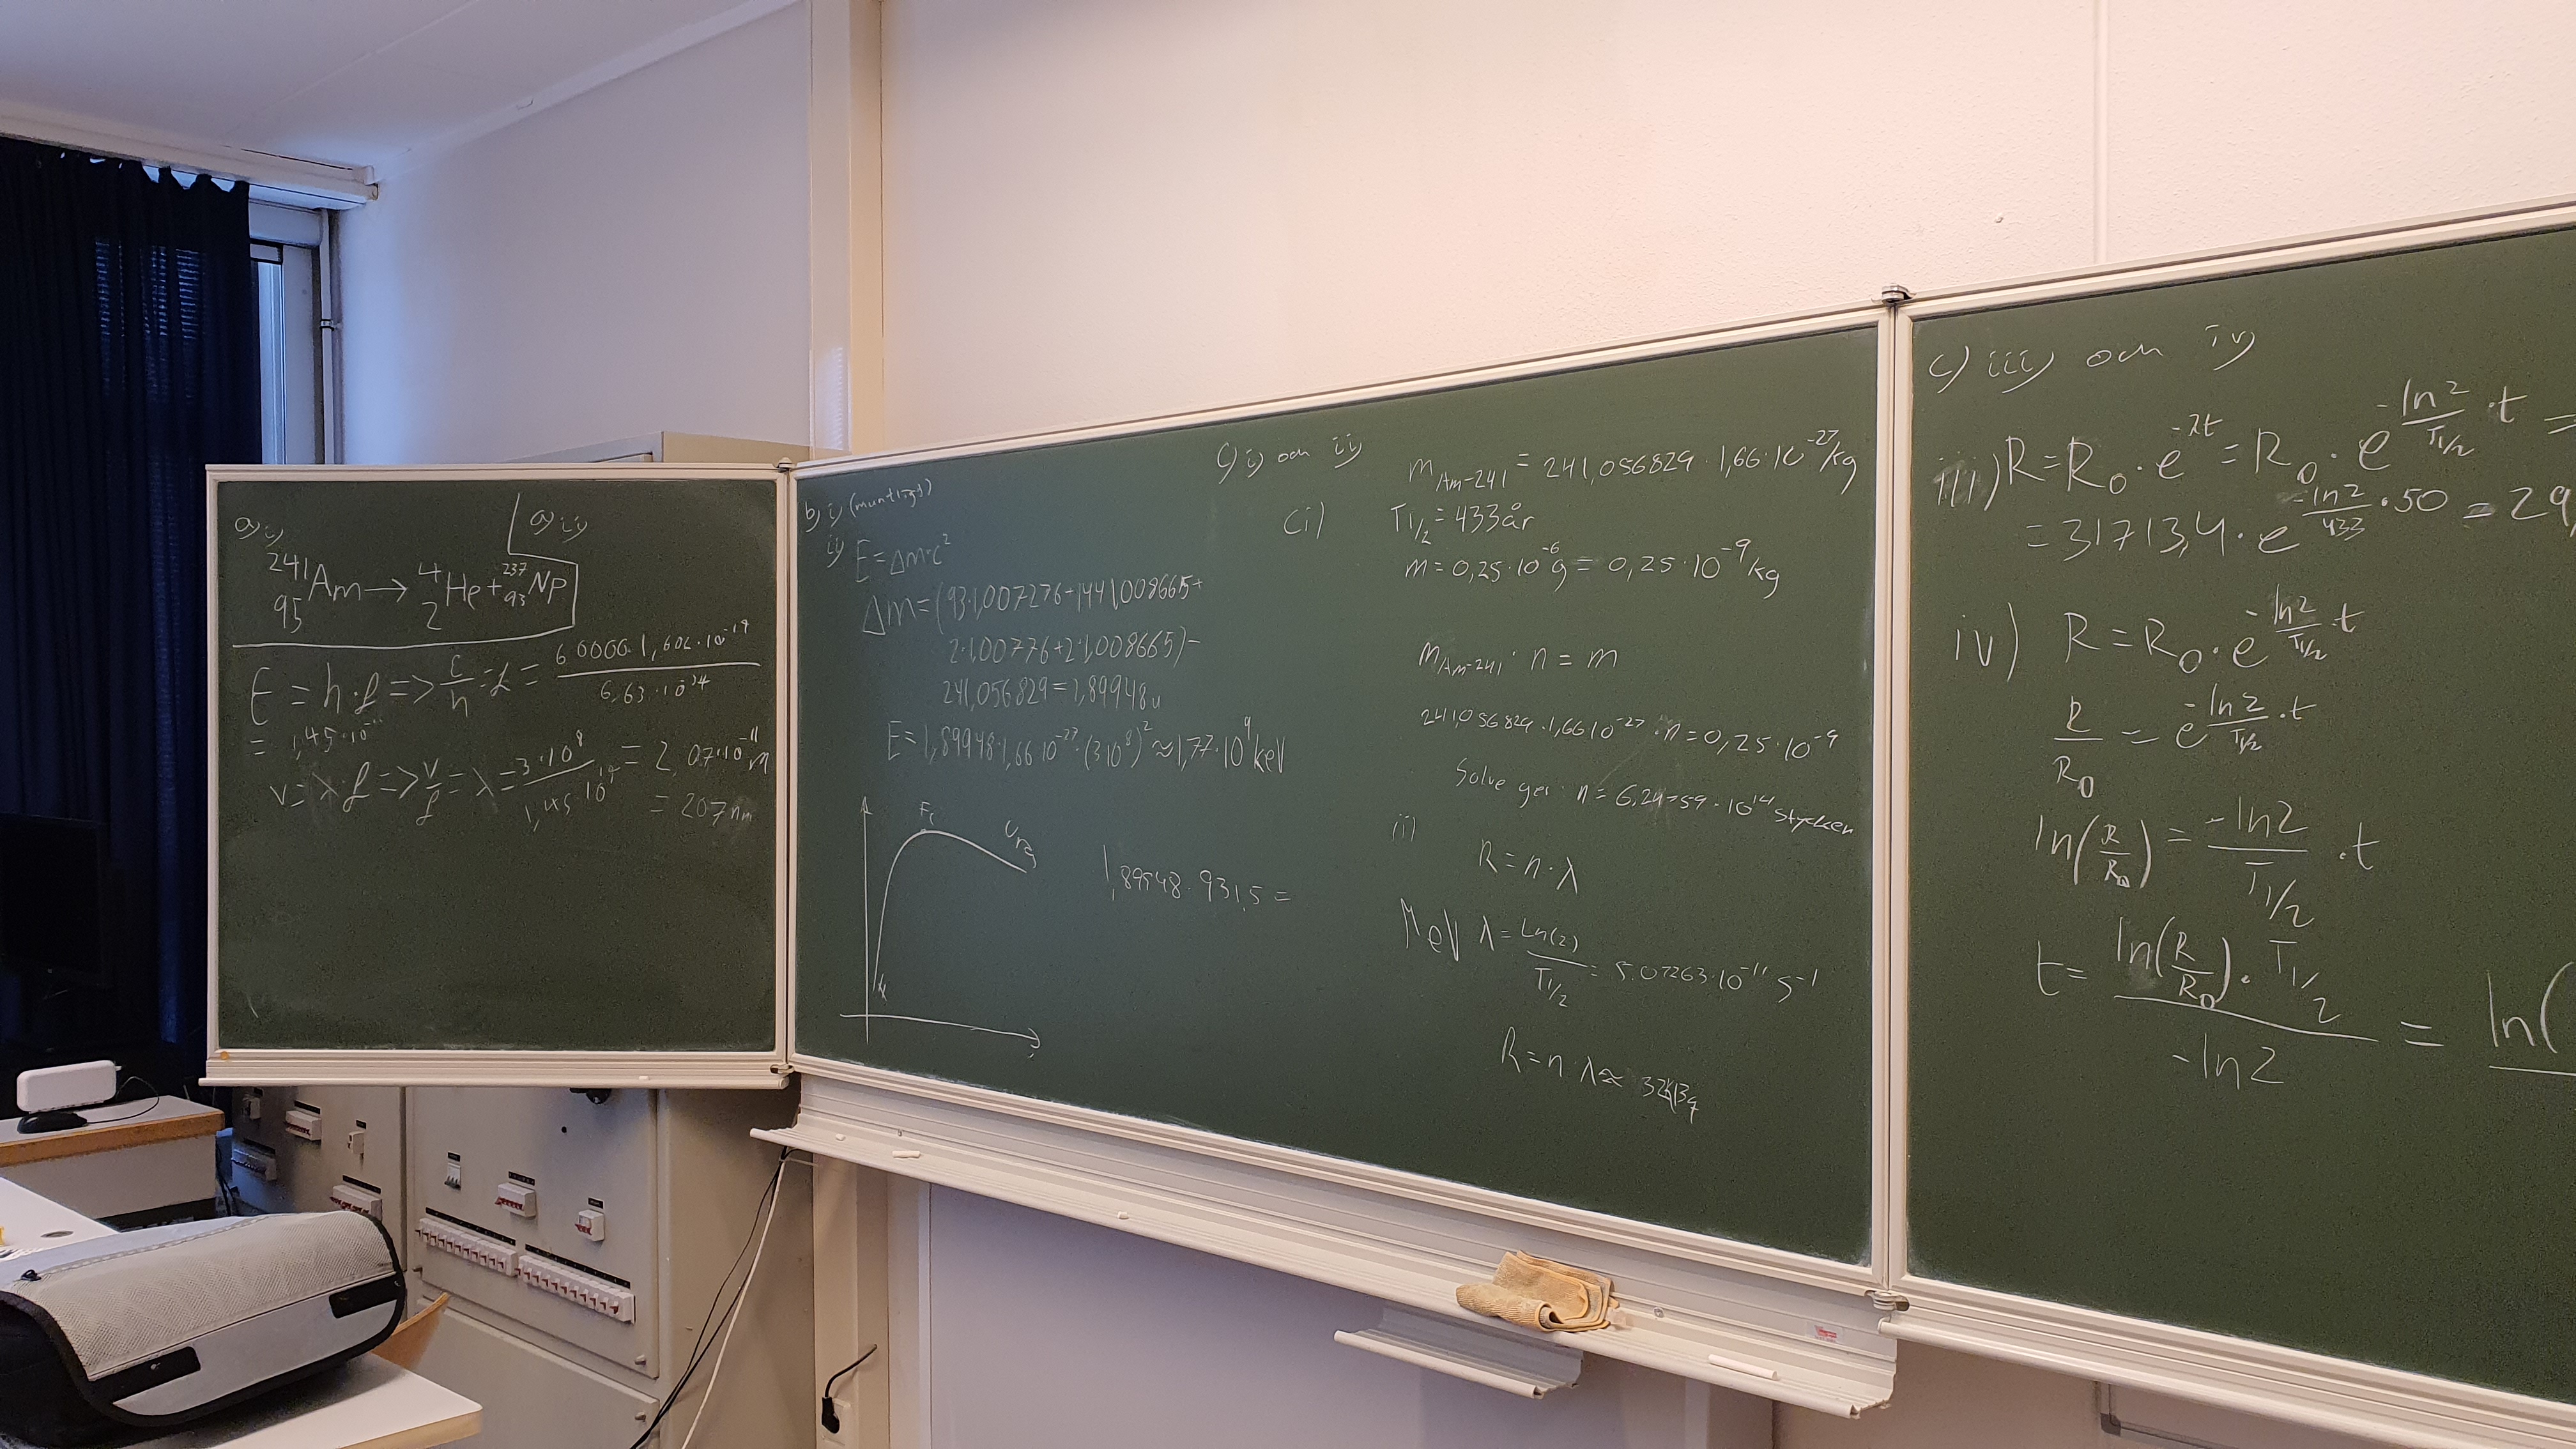 a) i)
a) ii)
²⁴¹₉₅Am → ⁴₂He + ²³⁷₉₃Np
E = h·f => E/h = f = 60000·1,602·10⁻¹⁹ / 6,63·10³⁴
= 1,45·10
v = λ·f => v/f = λ = 3·10⁸ / 1,45·10¹⁹ = 2,07·10⁻¹¹ m
= 207 nm
b) i) (muntligt)
ii) E = Δm·c²
Δm = (93·1,007276+144·1,008665+
2·1,00776+2·1,008665)-
241,056829 = 1,89948u
E = 1,89948·1,66·10⁻²⁷·(3·10⁸)² ≈ 1,77·10⁹ keV
Fe
Ura
1,89948·931,5 =
MeV
c) i) och ii)
m_Am-241 = 241,056829·1,66·10⁻²⁷ kg
ci) T₁/₂ = 433år
m = 0,25·10⁻⁶g = 0,25·10⁻⁹ kg
m_Am-241 · n = m
241,056829·1,66·10⁻²⁷·n = 0,25·10⁻⁹
Solve ger n = 6,24759·10¹⁴ stycken
ii)
R = n·λ
λ = Ln(2) / T₁/₂ = 5.07263·10⁻¹¹ s⁻¹
R = n·λ ≈
c) iii) och iv)
iii) R = R₀·e^(-λt) = R₀·e^(-ln2/T₁/₂ ·t) =
= 31713,4·e^(-ln2/433 ·50) = 29
iv) R = R₀·e^(-ln2/T₁/₂ ·t)
R/R₀ = e^(-ln2/T₁/₂ ·t)
ln(R/R₀) = -ln2/T₁/₂ ·t
t = ln(R/R₀)·T₁/₂ / -ln2 = ln(